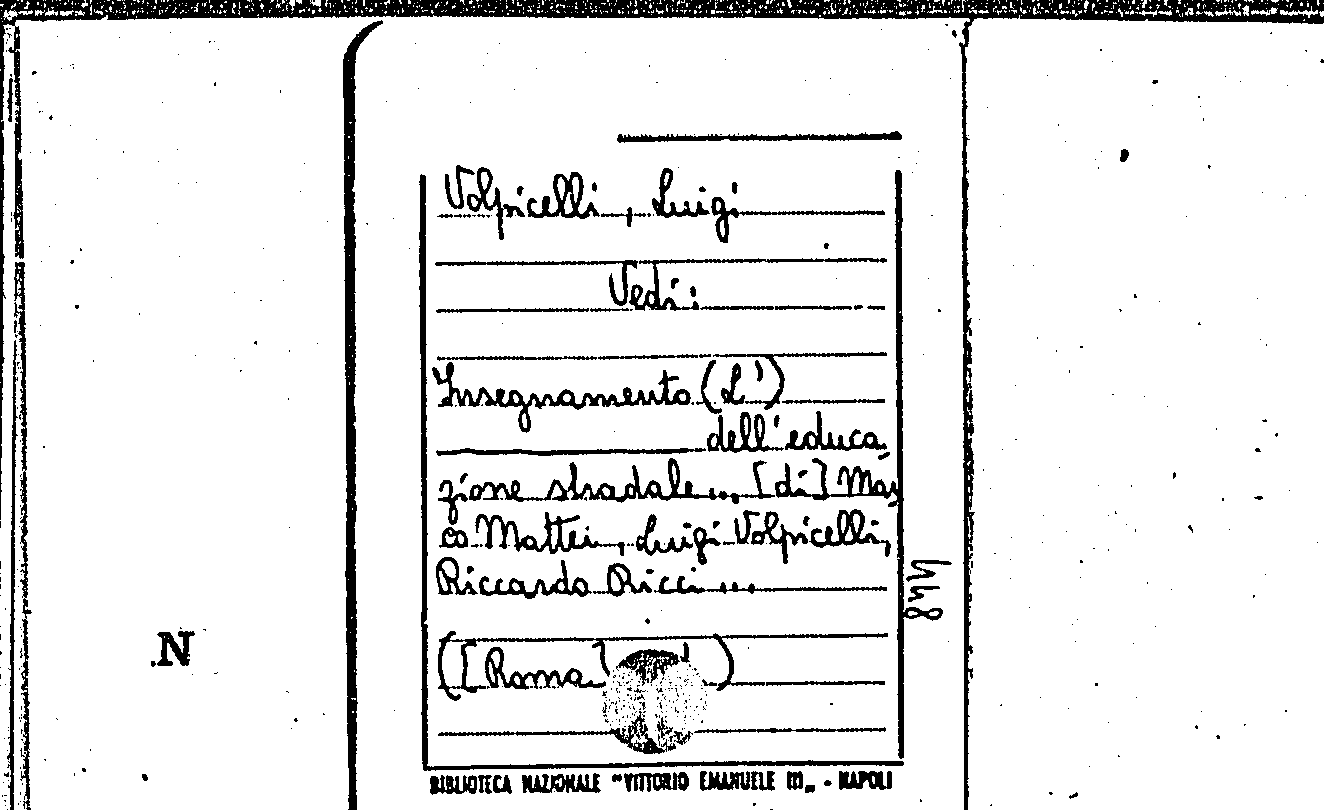 Volpicelli, Luigi
Vedi:
Insegnamento (L')
dell'educa
zione stradale... [di] Mar
co Mattei, Luigi Volpicelli,
Riccardo Ricci...
([Roma] )
BIBLIOTECA NAZIONALE "VITTORIO EMANUELE III„ - NAPOLI
N